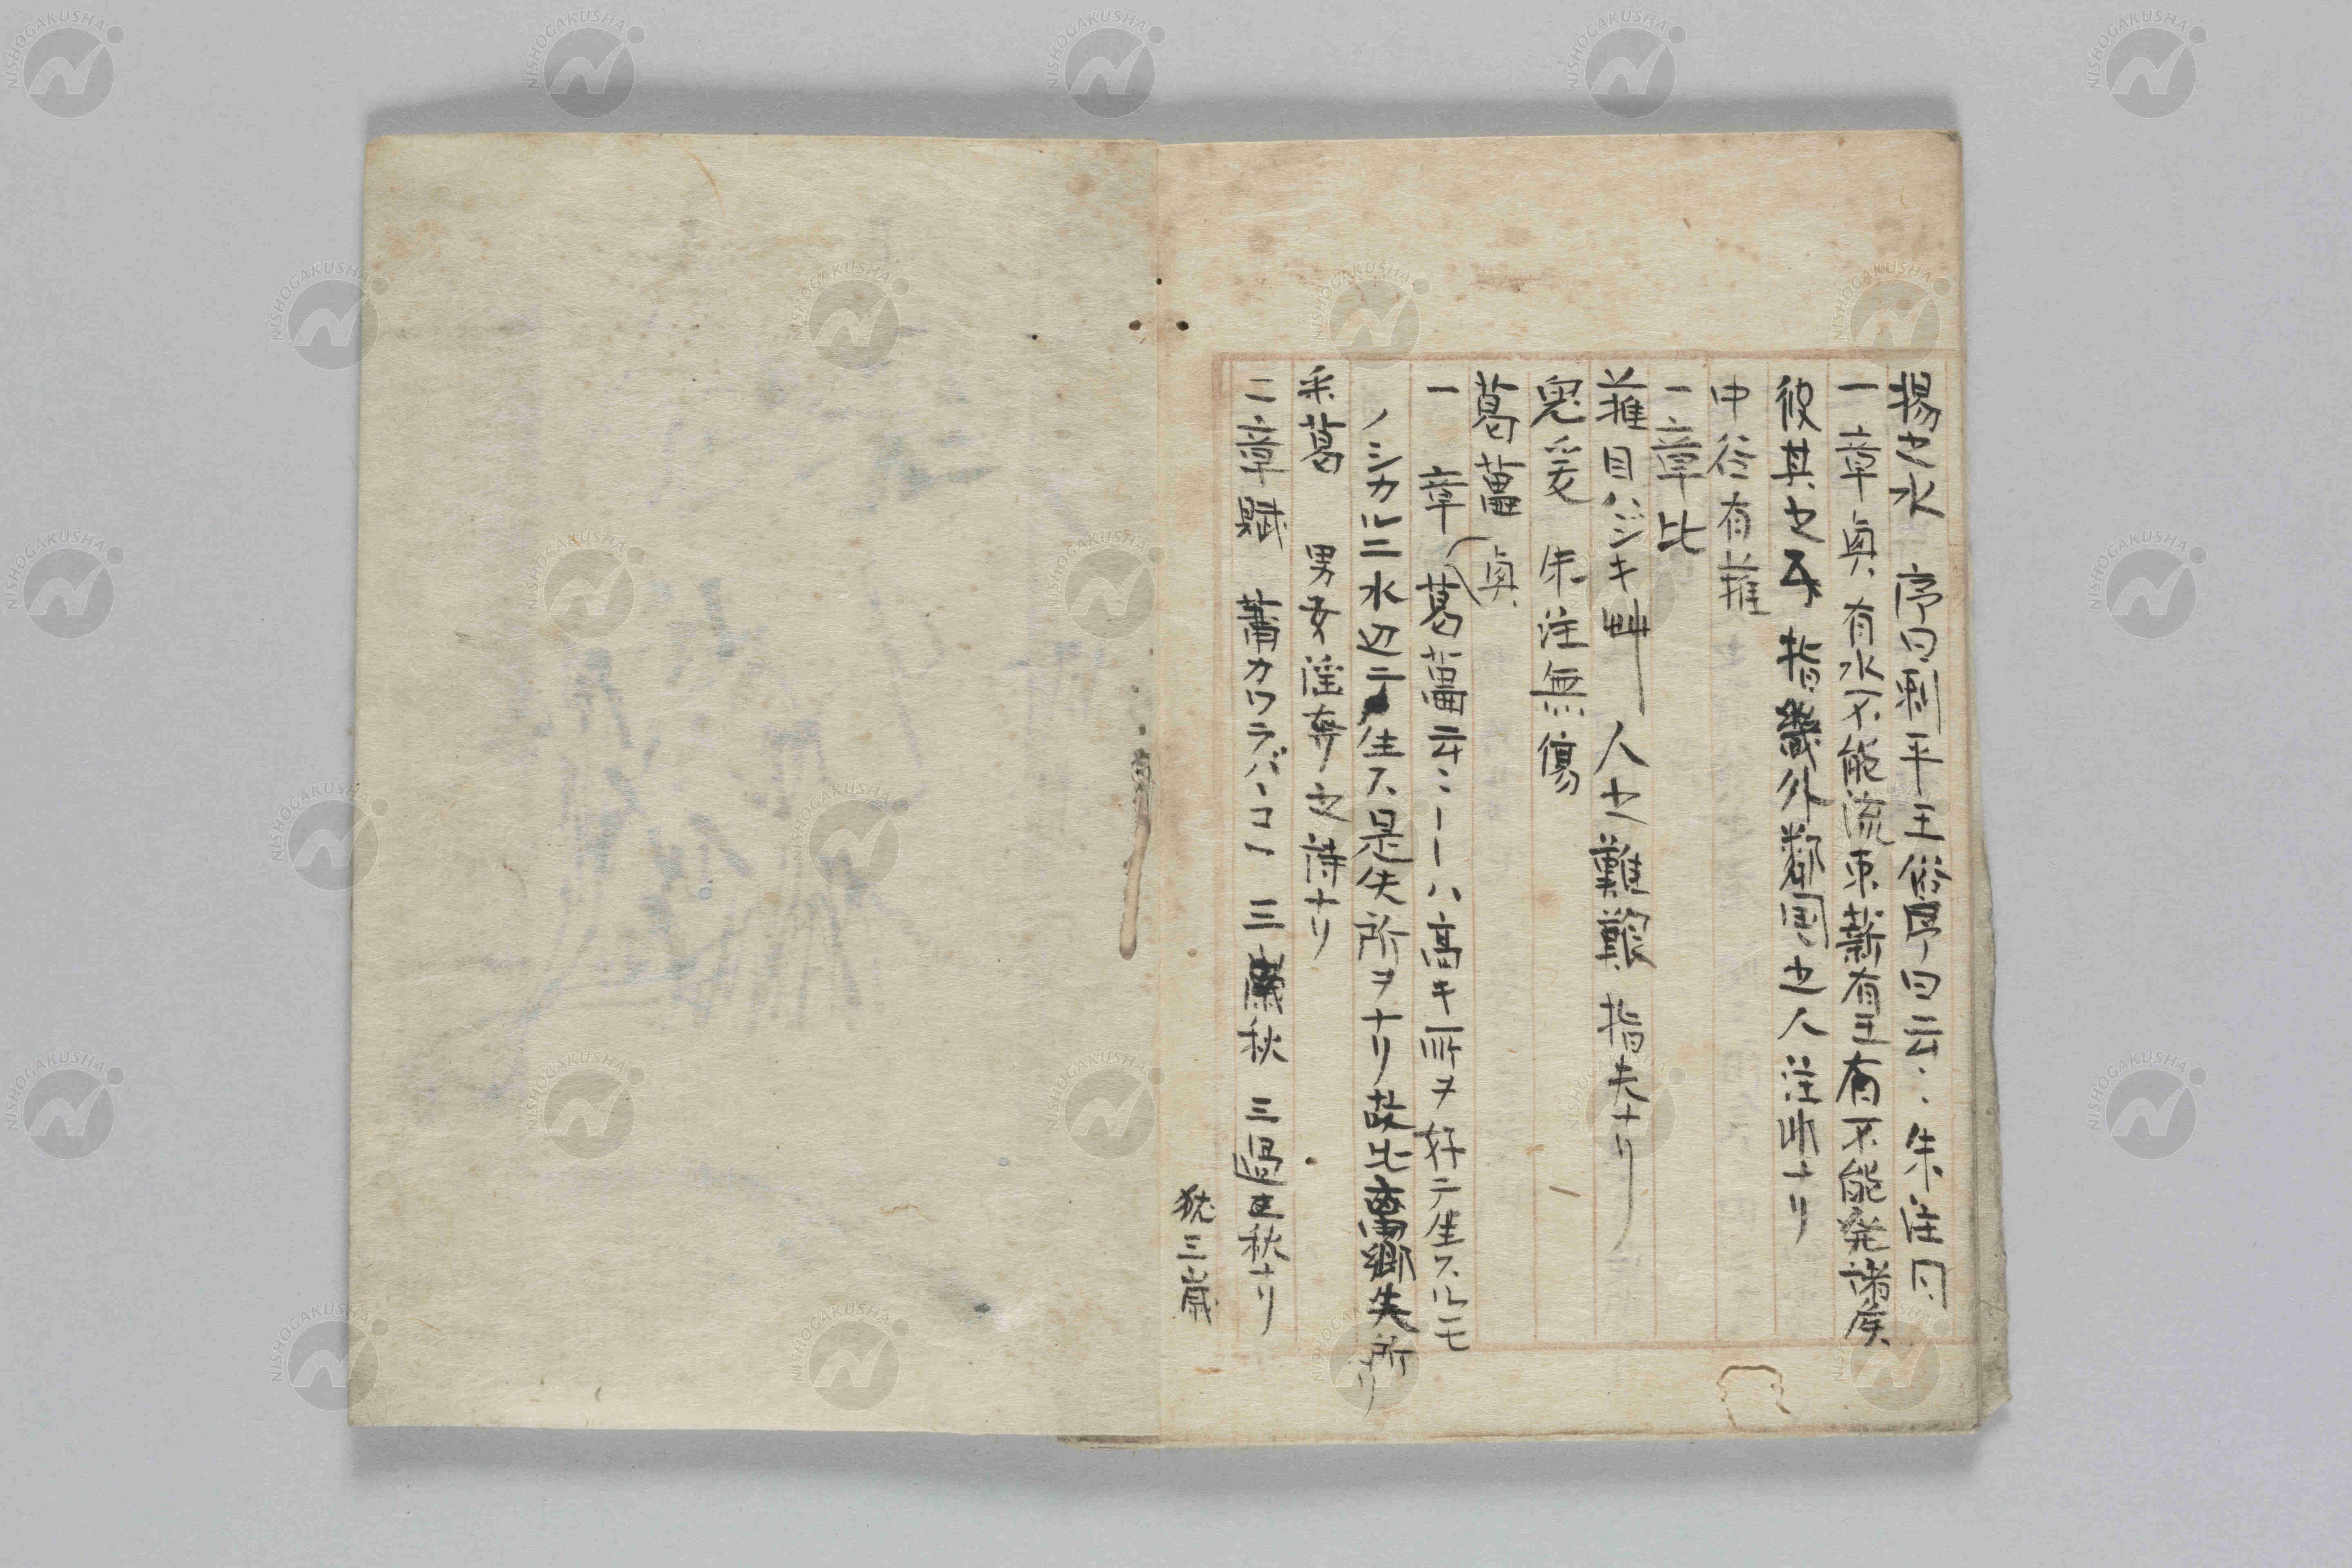 揚之水　序曰刺平王　曰云々朱注曰
一章興有水不能流束薪有王有不能発諸侯
彼其之子　指畿外鄰国之人注非ナリ
中谷有蓷
一章比
蓷目ハジキ艸　人之難艱　指夫ナリ
兔爰　朱注無傷
葛藟　興
一章　葛藟云々ーーハ高キ所ヲ好テ生スルモ
ノシカルニ水辺ニ生ス是失所ヲナリ故比　失所ナリ
采葛　男女淫奔之詩ナリ
二章賦　蕭カワラバハコ　三秋　三秋ナリ
猶三歳
NISHOGAKUSHA